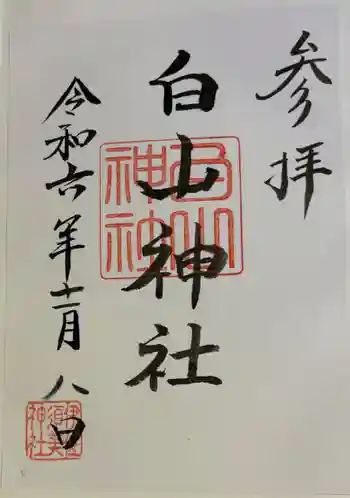 参拝
白山神社
令和六年十一月八日
白山
神社
伊豆
須美
神社